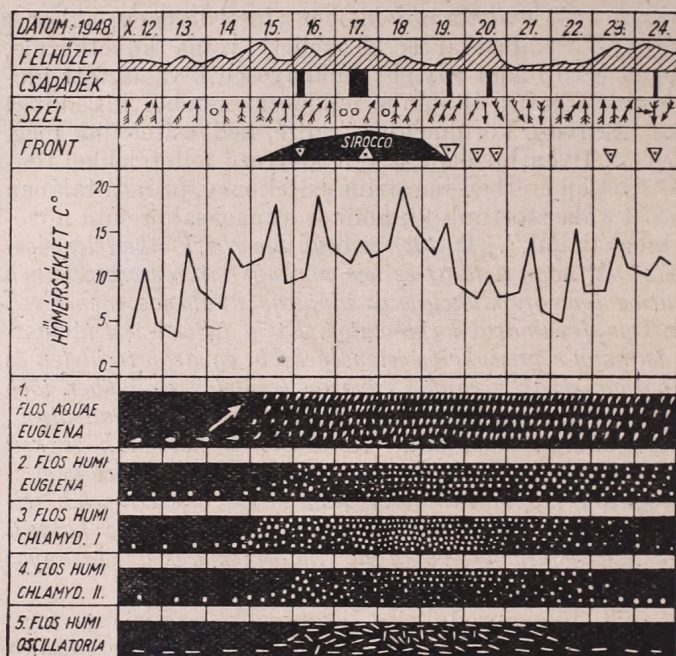 DÁTUM: 1948. X. 12. 13. 14. 15. 16. 17. 18. 19. 20. 21. 22. 23. 24.
FELHŐZET
CSAPADÉK
SZÉL
FRONT
SIROCCO
HŐMÉRSÉKLET C°
20
15
10
5
0
1.
FLOS AQUAE
EUGLENA
2. FLOS HUMI
EUGLENA
3. FLOS HUMI
CHLAMYD. I.
4. FLOS HUMI
CHLAMYD. II.
5. FLOS HUMI
OSCILLATORIA